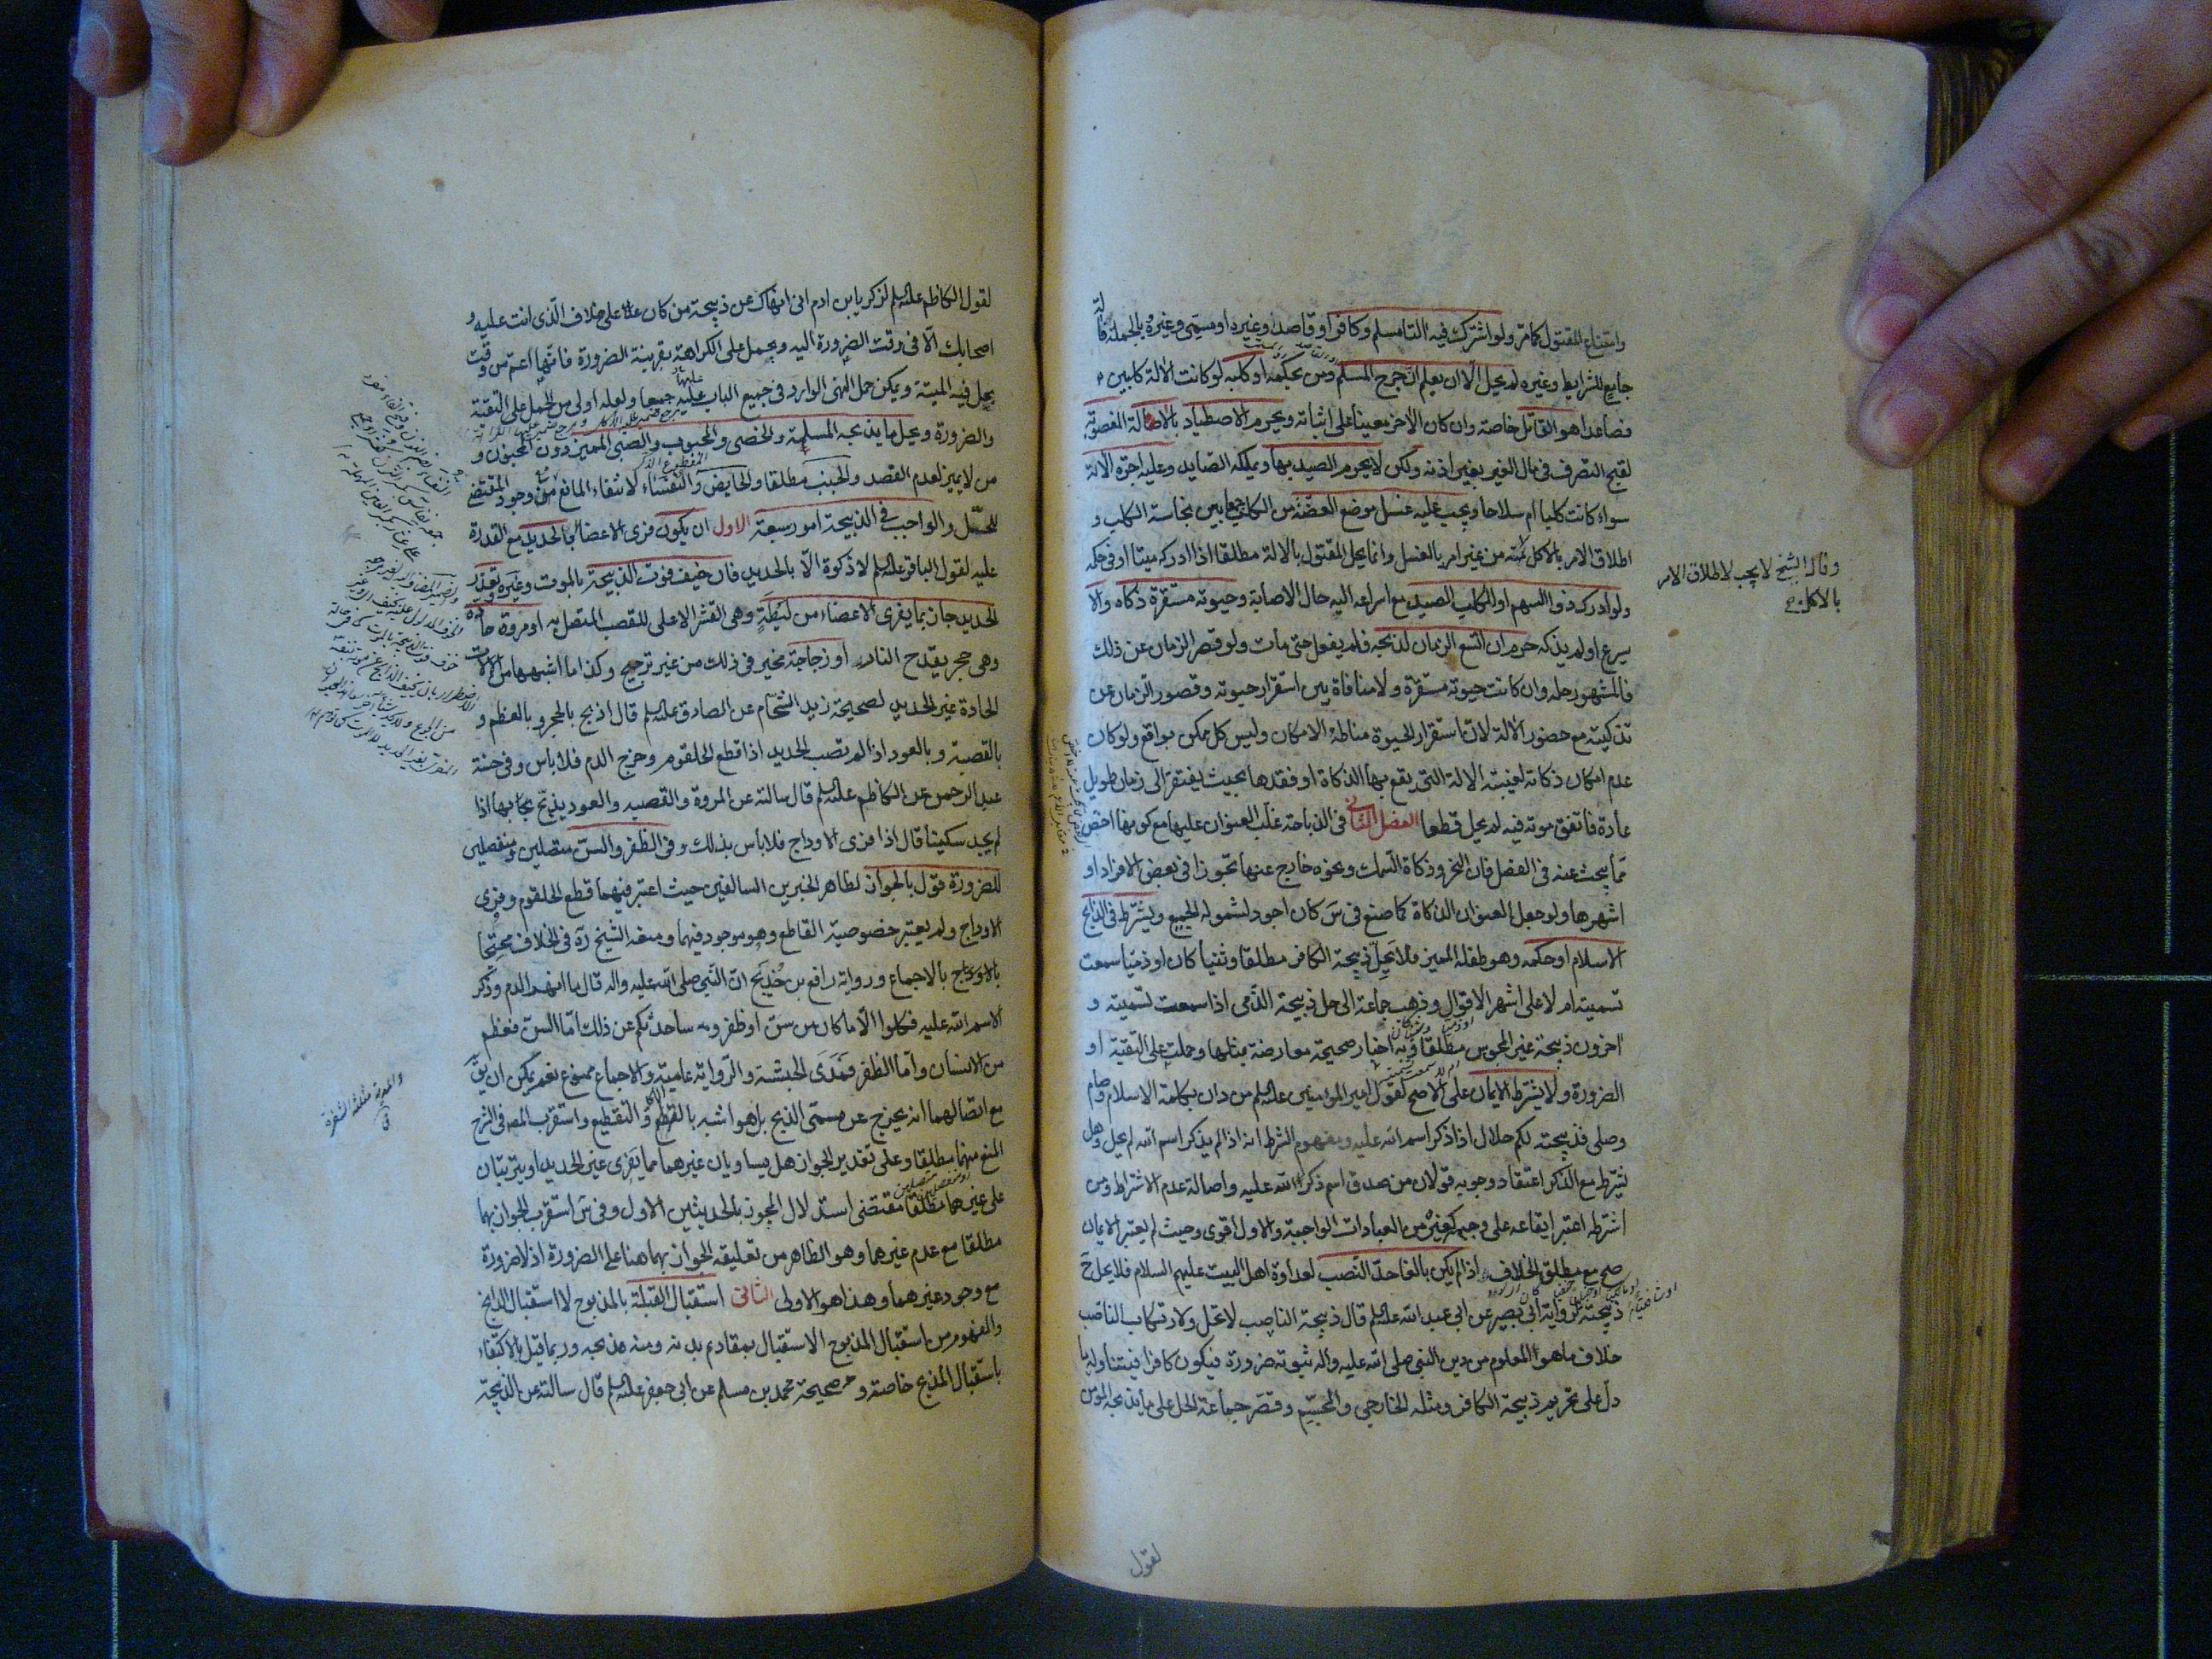 وامتناع المقتول كمامر ولو اشترك فيه آلتا مسلم وكافر او قاصد وغيره او مسمى وغيره وبالجملة فآلة
جامع للشرايط وغيره لم يحل الا ان يعلم ان جرح المسلم ومن بحكمه او كلبه لو كانت الآلة كلبين
فصاعدا هو القاتل خاصة وان كان الآخر معينا على اثباته ويحرم الاصطياد بالآلة المغصوبة
لقبح التصرف في مال الغير بغير اذنه ولكن لا يحرم الصيد بها ويملكه الصايد وعليه اجرة الآلة
سواء كانت كلبا ام سلاحا ويجب عليه غسل موضع العضة من الكلب جمعا بين نجاسة الكلب و
اطلاق الامر بالاكل منه من غير امر بالغسل وانما يحل المقتول بالآلة مطلقا اذا ادركه ميتا او في حكمه
ولو ادرك ذو السهم او الكلب الصيد مع اسراعه اليه حال الاصابة وحيوته مستقرة ذكاه والا
يسرع او لم يذكه حرم ان اتسع الزمان لذبحه فلم يفعل حتى مات ولو قصر الزمان عن ذلك
فالمشهور حله وان كانت حيوته مستقرة ولا منافاة بين استقرار حيوته وقصور الزمان عن
تذكيته مع حضور الآلة لان استقرار الحيوة مناطه الامكان وليس كل ممكن بواقع ولو كان
عدم امكان ذكاته لغيبة الآلة التي يقع بها الذكاة او فقدها بحيث يفتقر الى زمان طويل
عادة فاتفق موته فيه لم يحل قطعا الفصل الثاني في الذباحة غلب العنوان عليها مع كونها اخص
مما يبحث عنه في الفصل فان النحر وذكاة السمك ونحوه خارج عنها تجوزا في بعض الافراد او
اشهرها ولو جعل العنوان الذكاة كما صنع في س كان اجود لشموله الجميع ويشترط في الذابح
الاسلام او حكمه وهو طفله المميز فلا يحل ذبيحة الكافر مطلقا وثنيا كان او ذميا سمعت
تسميته ام لا على اشهر الاقوال وذهب جماعة الى حل ذبيحة الذمي اذا سمعت تسميته و
آخرون ذبيحة غير المجوس مطلقا وبه اخبار صحيحة معارضة بمثلها وحملت على التقية او
الضرورة ولا يشترط الايمان على الاصح لقول امير المؤمنين عليه السلم من دان بكلمة الاسلام وصام
وصلى فذبيحته لكم حلال اذا ذكر اسم الله عليه ومفهوم الشرط انه اذا لم يذكر اسم الله لم يحل وهل
يشترط مع الذكر اعتقاد وجوبه قولان من صدق اسم ذكر الله عليه واصالة عدم الاشتراط ومن
اشترطه اعتبر ايقاعه على وجهه كغيره من العبادات الواجبة والاول اقوى وحيث لم يعتبر الايمان
صح مع مطلق الخلاف اذا لم يكن بالغا حد النصب لعداوة اهل البيت عليهم السلام فلا يحل ح
ذبيحته لرواية ابي بصير عن ابي عبد الله عليه السلم قال ذبيحة الناصب لا تحل ولارتكاب الناصب
خلاف ما هو المعلوم من دين النبي صلى الله عليه واله ثبوته ضرورة فيكون كافرا فيتناوله ما
دل على تحريم ذبيحة الكافر ومثله الخارجي والمجسم وقصر جماعة الحل على ما يذبحه المؤمن
وقال الشيخ لا يجب لاطلاق الامر
بالاكل
لقول
لقول الكاظم عليه السلم لزكريا بن ادم اني انهاك عن ذبيحة من كان على خلاف الذي انت عليه و
اصحابك الا في وقت الضرورة اليه ويحمل على الكراهة بقرينة الضرورة فانها اعم من وقت
يحل فيه الميتة ويمكن حمل النهي الوارد في جميع الباب عليه جميعا ولعله اولى من الحمل على التقية
والضرورة ويحل ما يذبحه المسلمة والخصي والمجبوب والصبي المميز دون المجنون و
من لا يميز لعدم القصد والجنب مطلقا والحايض والنفساء لانتفاء المانع مع وجود المقتضي
للحل والواجب في الذبيحة امور سبعة الاول ان يكون فري الاعضاء بالحديد مع القدرة
عليه لقول الباقر عليه السلم لا ذكوة الا بالحديد فان خيف فوت الذبيحة بالموت وغيره وتعذر
الحديد جاز بما يفري الاعضاء من ليطة وهي القشر الاعلى للقصب المتصل به او مروة حادة
وهي حجر يقدح النار او زجاجة مخير في ذلك من غير ترجيح وكذا ما اشبهها من الآلات
الحادة غير الحديد لصحيحة زيد الشحام عن الصادق عليه السلم قال اذبح بالحجر وبالعظم و
بالقصبة وبالعود اذا لم تصب الحديد اذا قطع الحلقوم وخرج الدم فلا باس وفي حسنة
عبد الرحمن عن الكاظم عليه السلم قال سالته عن المروة والقصبه والعود يذبح بها اذا
لم يجد سكينا قال اذا فرى الاوداج فلا باس بذلك وفي الظفر والسن متصلين ومنفصلين
للضرورة قول بالجواز لظاهر الخبرين السالفين حيث اعتبر فيهما قطع الحلقوم وفري
الاوداج ولم يعتبر خصوصية القاطع وهو موجود فيهما ومنعه الشيخ ره في الخلاف محتجا
بالاجماع ورواية رافع بن خديج ان النبي صلى الله عليه واله قال ما انهر الدم وذكر
اسم الله عليه فكلوا الا ما كان من سن او ظفر وساحدثكم عن ذلك اما السن فعظم
من الانسان واما الظفر فمدى الحبشة والرواية عامية والاجماع ممنوع نعم يمكن ان يق
مع اتصالهما انه يخرج عن مسمى الذبح بل هو اشبه بالقطع والتقطيع واستقرب المصه في الشرح
المنع منهما مطلقا وعلى تقدير الجواز هل يساويان غيرهما مما يفري غير الحديد او يترتبان
على غيرهما مطلقا مقتضى استدلال المجوز بالحديثين الاول وفي س استقرب الجواز بهما
مطلقا مع عدم غيرهما وهو الظاهر من تعليقه الجواز بهما هنا على الضرورة اذ لا ضرورة
مع وجود غيرهما وهذا هو الاولى الثاني استقبال القبلة بالمذبوح لا استقبال الذابح
والمفهوم من استقبال المذبوح الاستقبال بمقاديم بدنه ومنه مذبحه وربما قيل بالاكتفاء
باستقبال المذبح خاصة وصحيحة محمد بن مسلم عن ابي جعفر عليه السلم قال سالته عن الذبيحة